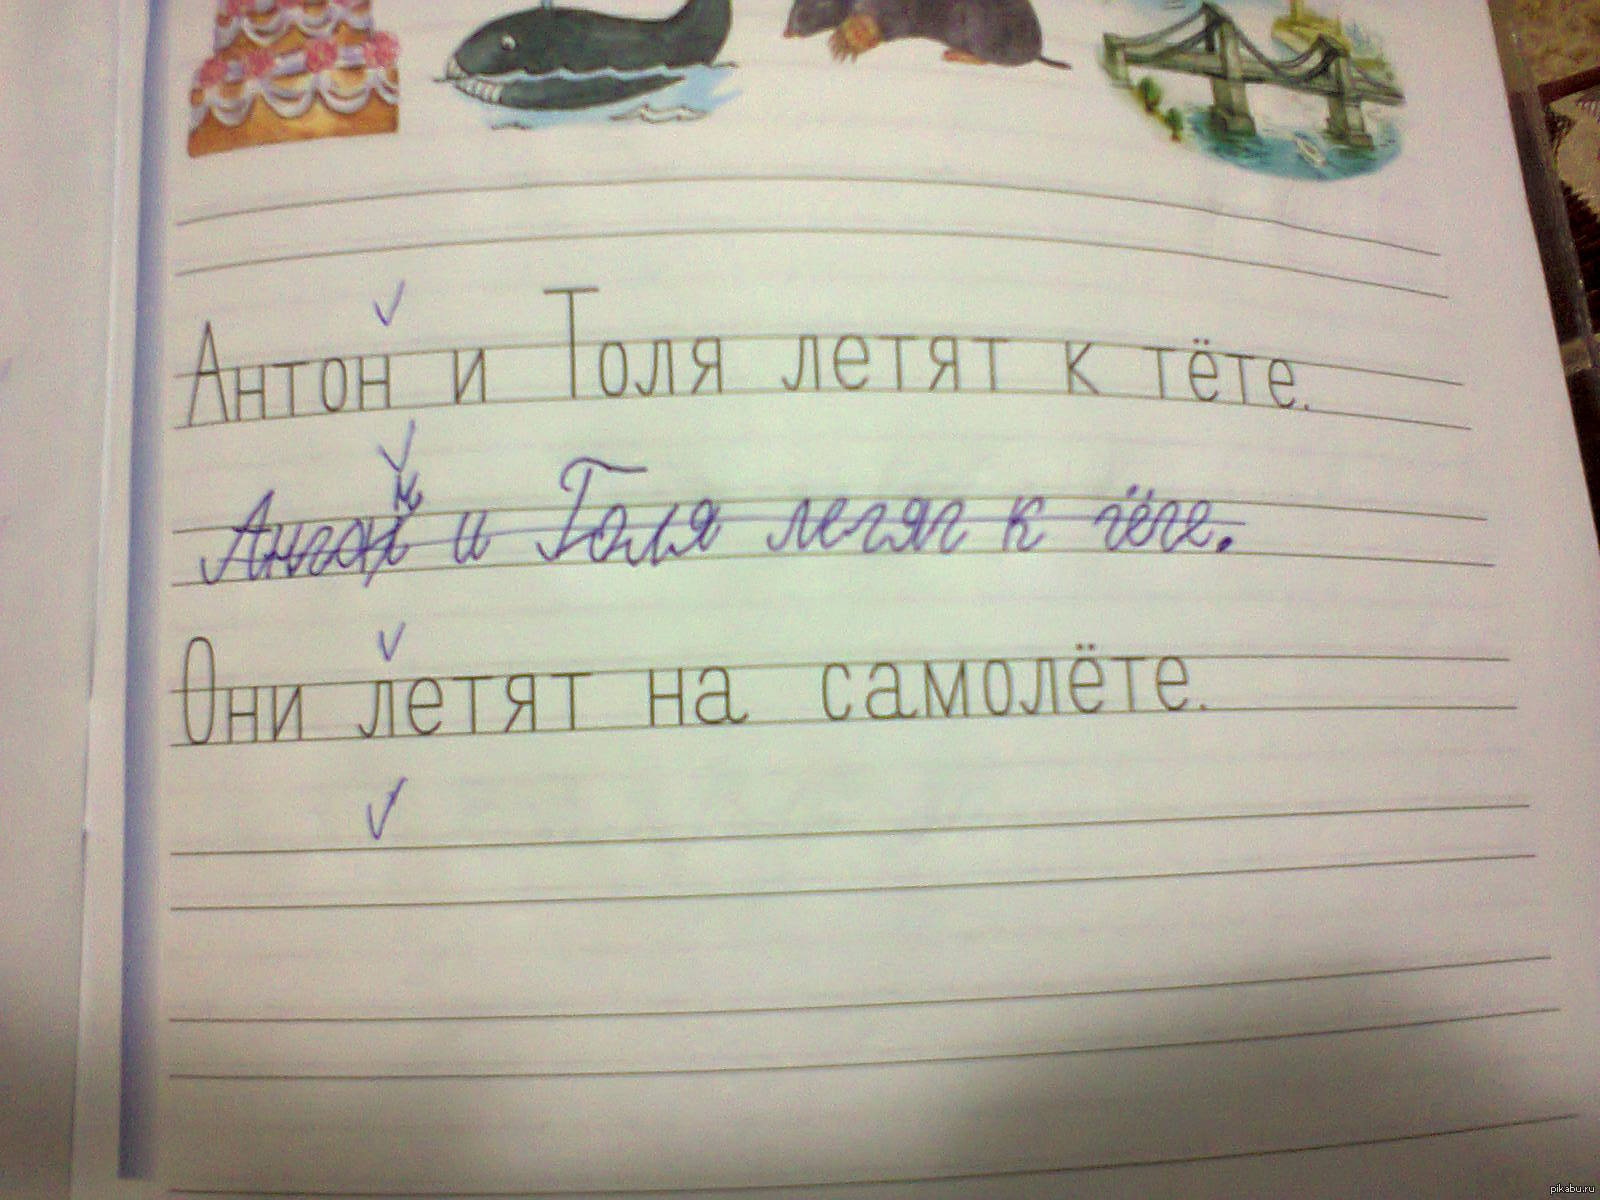 Антон и Толя летят к тёте.
н
Антон и Толя летят к тёте.
Они летят на самолёте.
pikabu.ru